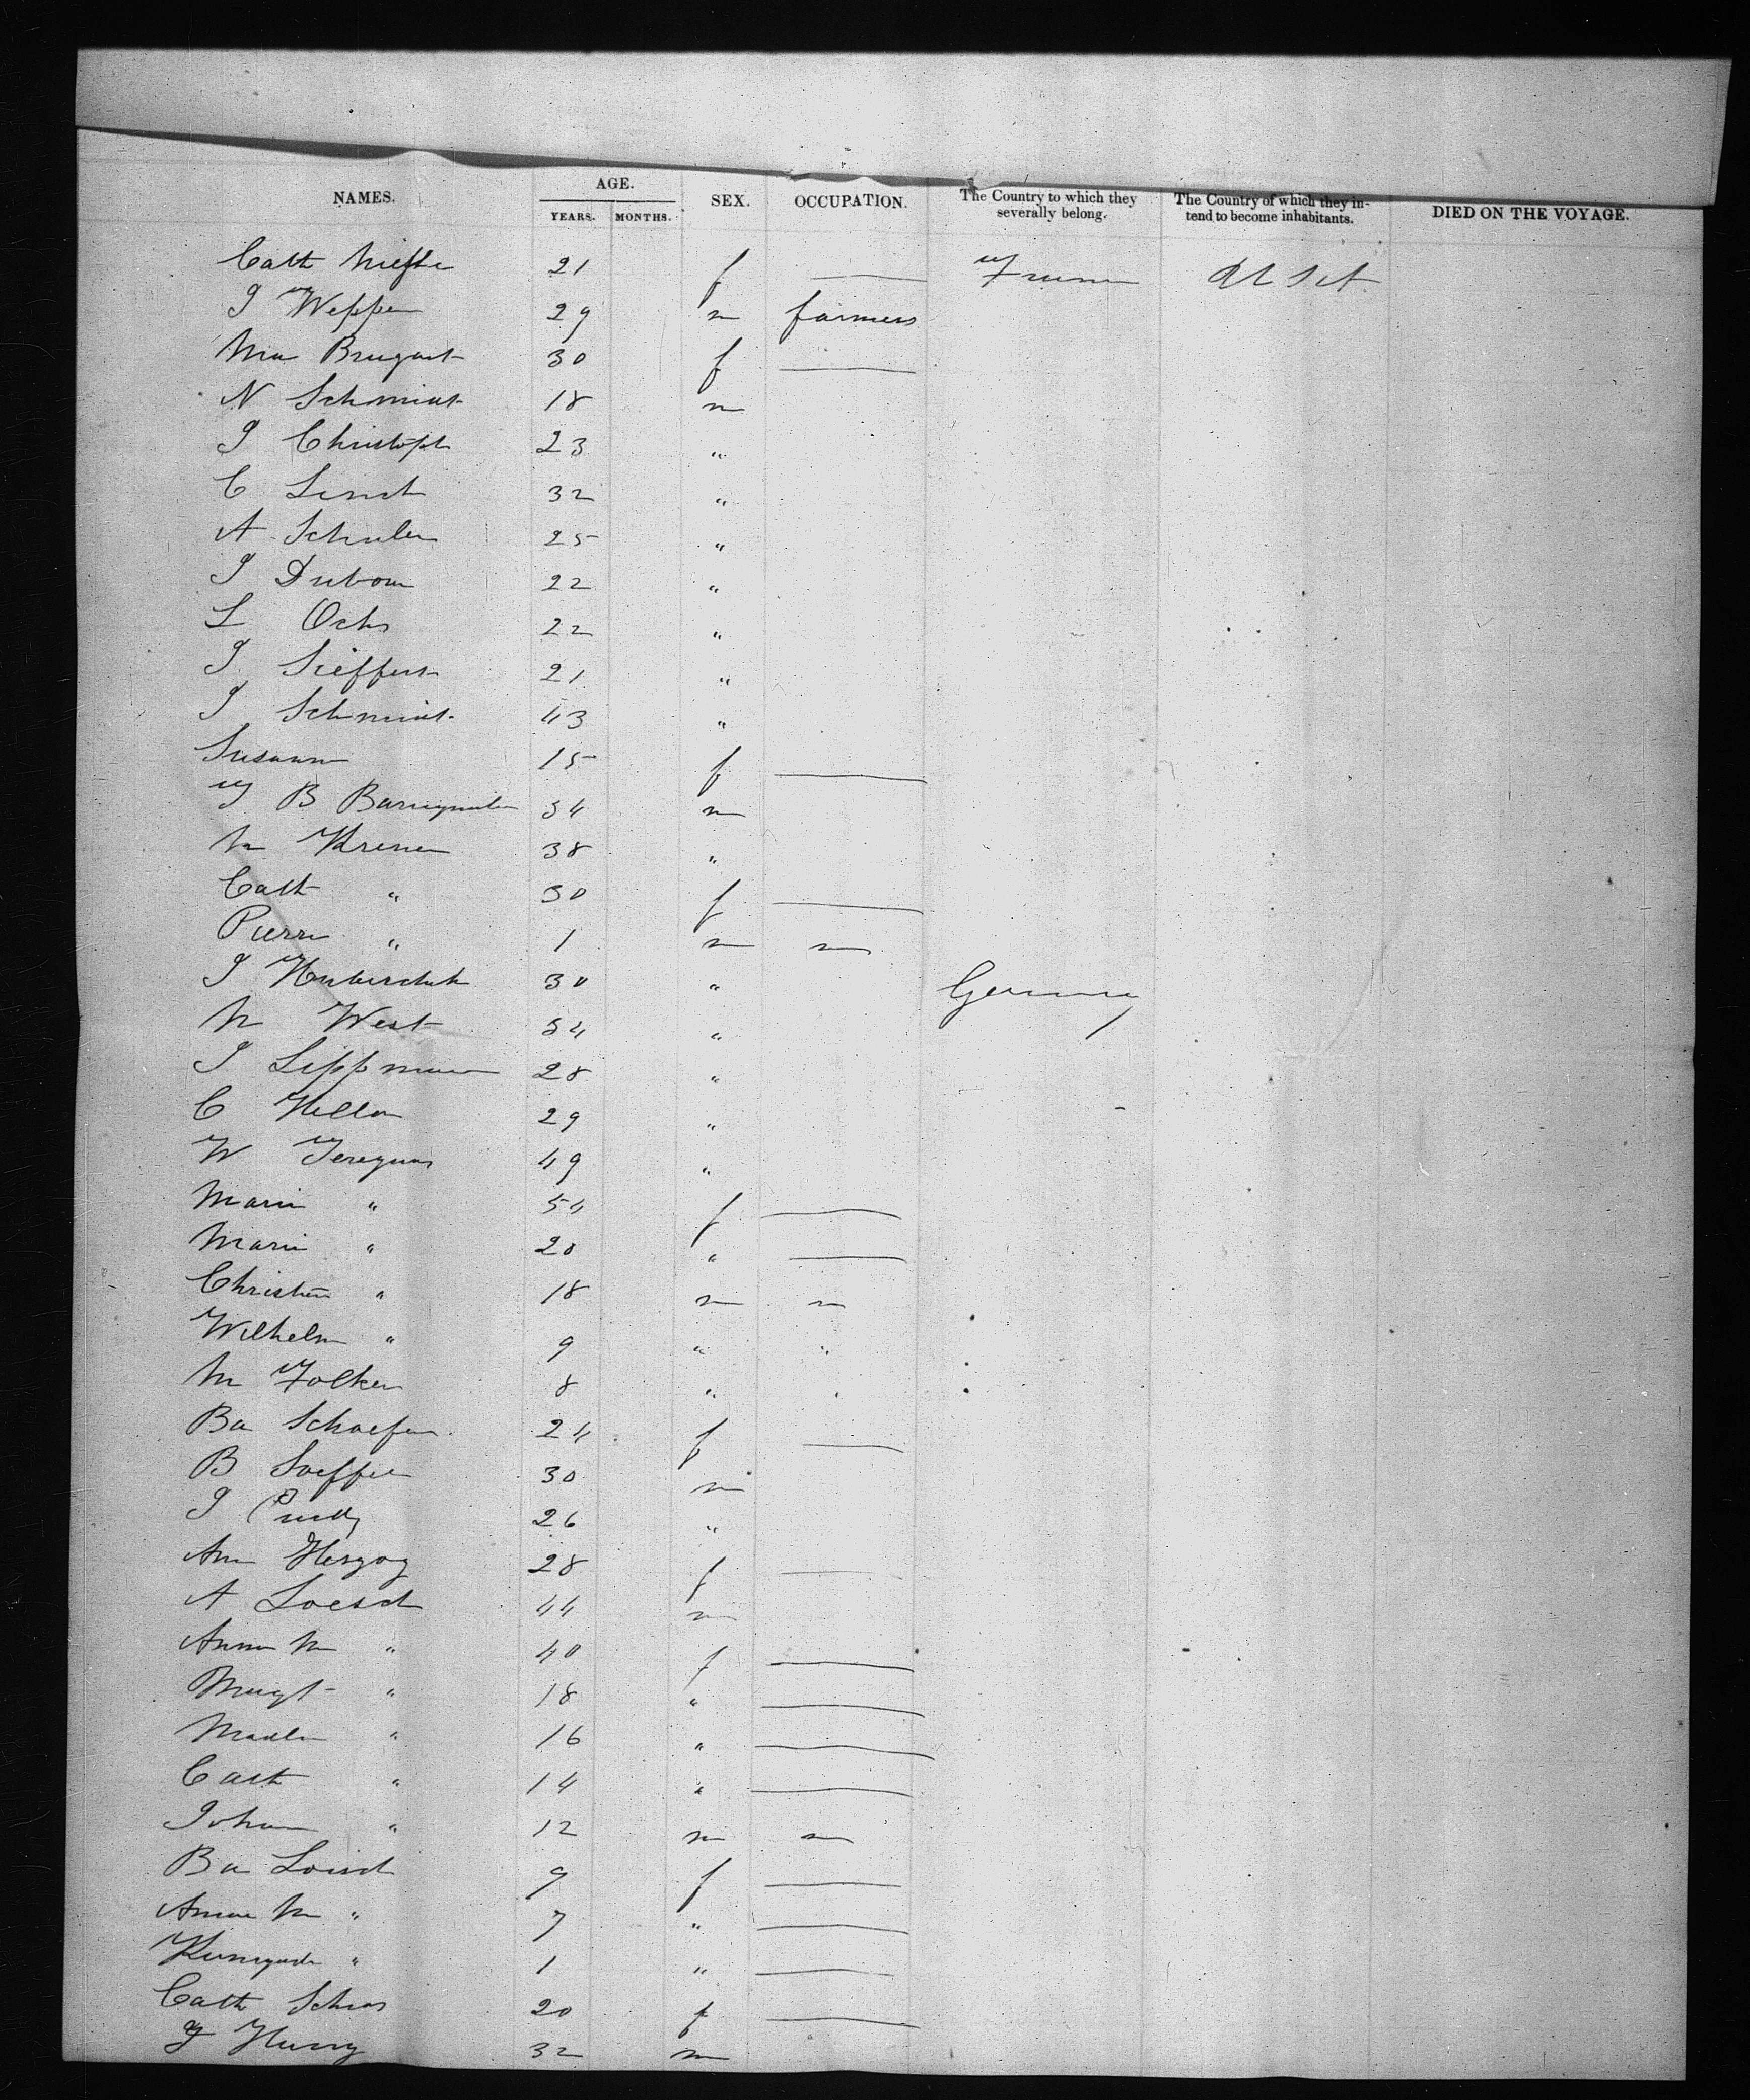 NAMES. AGE. SEX. OCCUPATION. The Country to which they severally belong. The Country of which they intend to become inhabitants. DIED ON THE VOYAGE.
YEARS. MONTHS.
Cath 21 f —
29 m farmers
30 f —
N Schmidt 18 m
J Christoph 23 "
C 32 "
A Schuler 25 "
J 22 "
L Ochs 22 "
J Sieffert 21 "
J Schmidt 43 "
Susann 15 f —
J B 34 m
M 38 "
Cath " 30 f —
Pierre " 1 m m
J 30 " Germany
M West 34 "
J Lippmann 28 "
C Heller 29 "
W 49 "
Marie " 54 f —
Marie " 20 " —
Christian " 18 m m
Wilhelm " 9 " "
M Folker 8 "
Ba Schaefer 24 f —
B 30 m
J 26 "
Ann Herzog 28 f —
A Loesch 44 m
Anna M " 40 f —
Margt " 18 " —
Madln " 16 " —
Cath " 14 " —
Johan " 12 m m
Ba Loesch 9 f —
Anna M " 7 " —
" 1 " —
Cath 20 f —
32 m